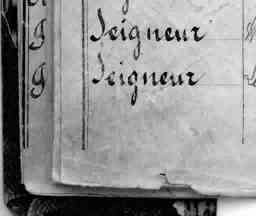 Seigneur
Seigneur